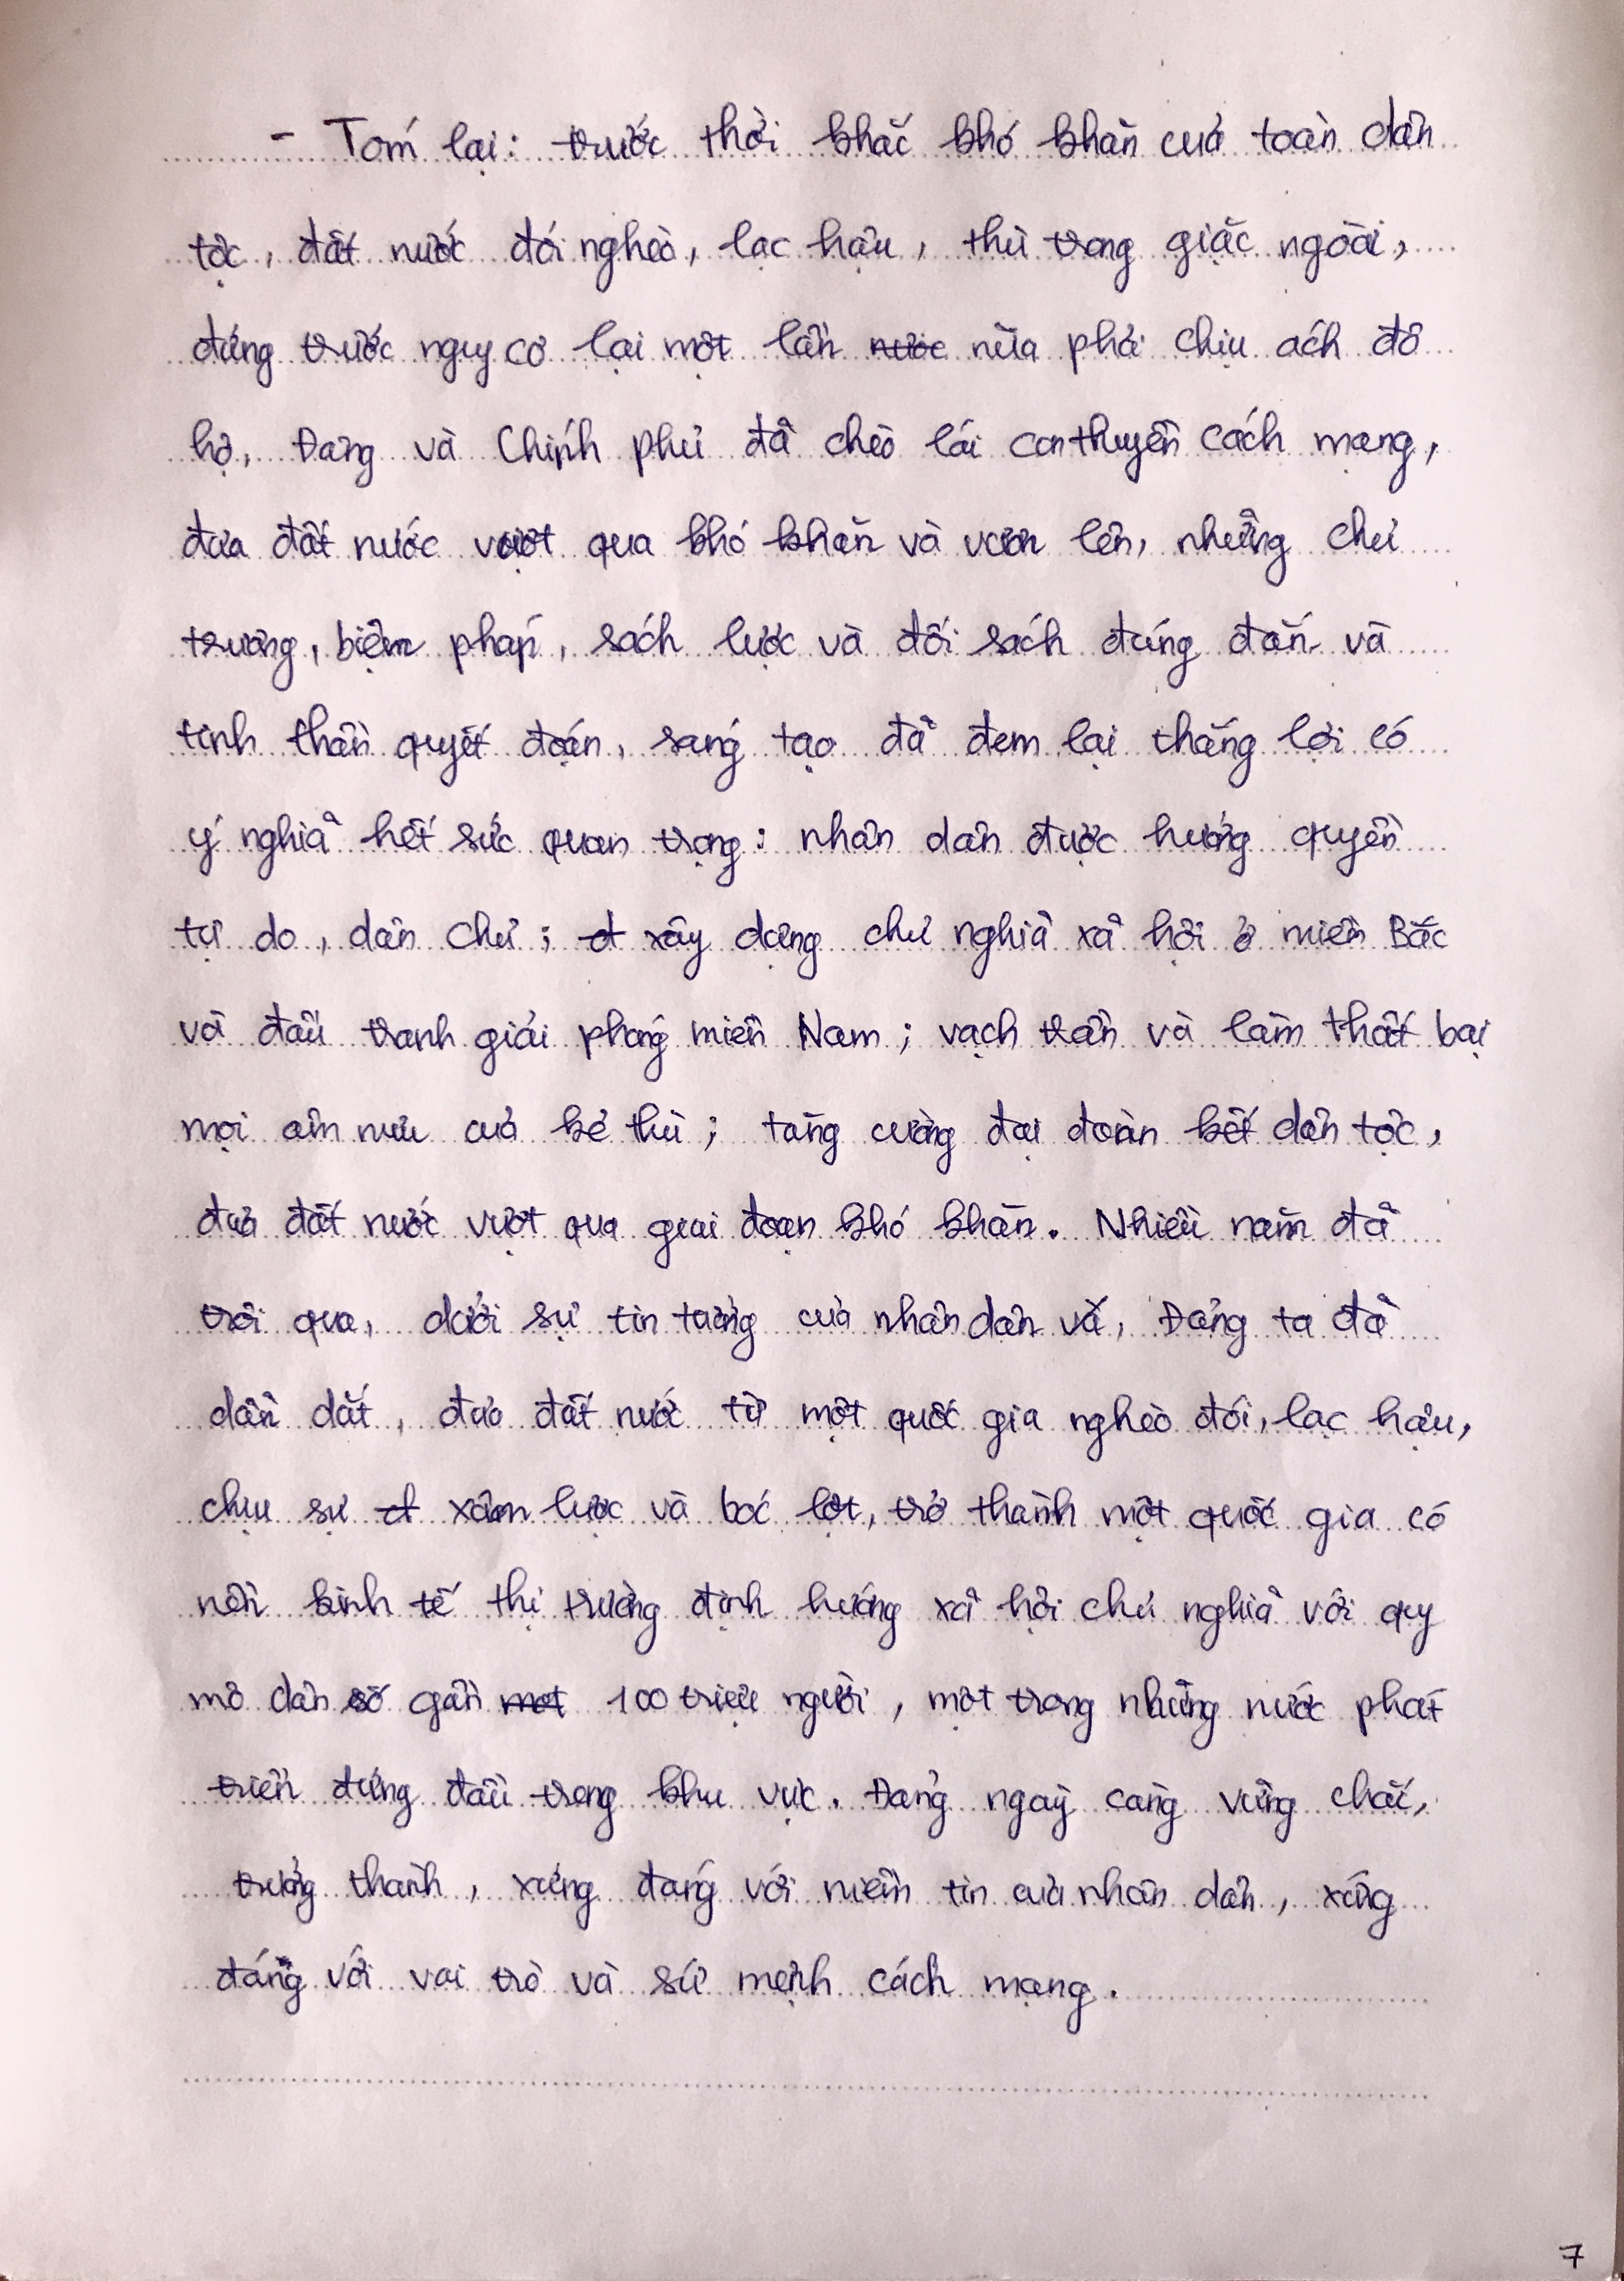 - Tóm lại: trước thời khắc khó khăn của toàn dân
tộc, đất nước đói nghèo, lạc hậu, thù trong giặc ngoài,
đứng trước nguy cơ lại một lần nước nữa phải chịu ách đô
hộ, Đảng và Chính phủ đã chèo lái con thuyền cách mạng,
đưa đất nước vượt qua khó khăn và vươn lên, những chủ
trương, biện pháp, sách lược và đối sách đúng đắn và
tinh thần quyết đoán, sáng tạo đã đem lại thắng lợi có
ý nghĩa hết sức quan trọng: nhân dân được hưởng quyền
tự do, dân chủ; đ xây dựng chủ nghĩa xã hội ở miền Bắc
và đấu tranh giải phóng miền Nam; vạch trần và làm thất bại
mọi âm mưu của kẻ thù; tăng cường đại đoàn kết dân tộc,
đưa đất nước vượt qua giai đoạn khó khăn. Nhiều năm đã
trôi qua, dưới sự tin tưởng của nhân dân và, Đảng ta đã
dẫn dắt, đưa đất nước từ một quốc gia nghèo đói, lạc hậu,
chịu sự đ xâm lược và bóc lột, trở thành một quốc gia có
nền kinh tế thị trường định hướng xã hội chủ nghĩa với quy
mô dân số gần một 100 triệu người, một trong những nước phát
triển đứng đầu trong khu vực. Đảng ngày càng vững chắc,
trưởng thành, xứng đáng với niềm tin của nhân dân, xứng
đáng với vai trò và sứ mệnh cách mạng.
7